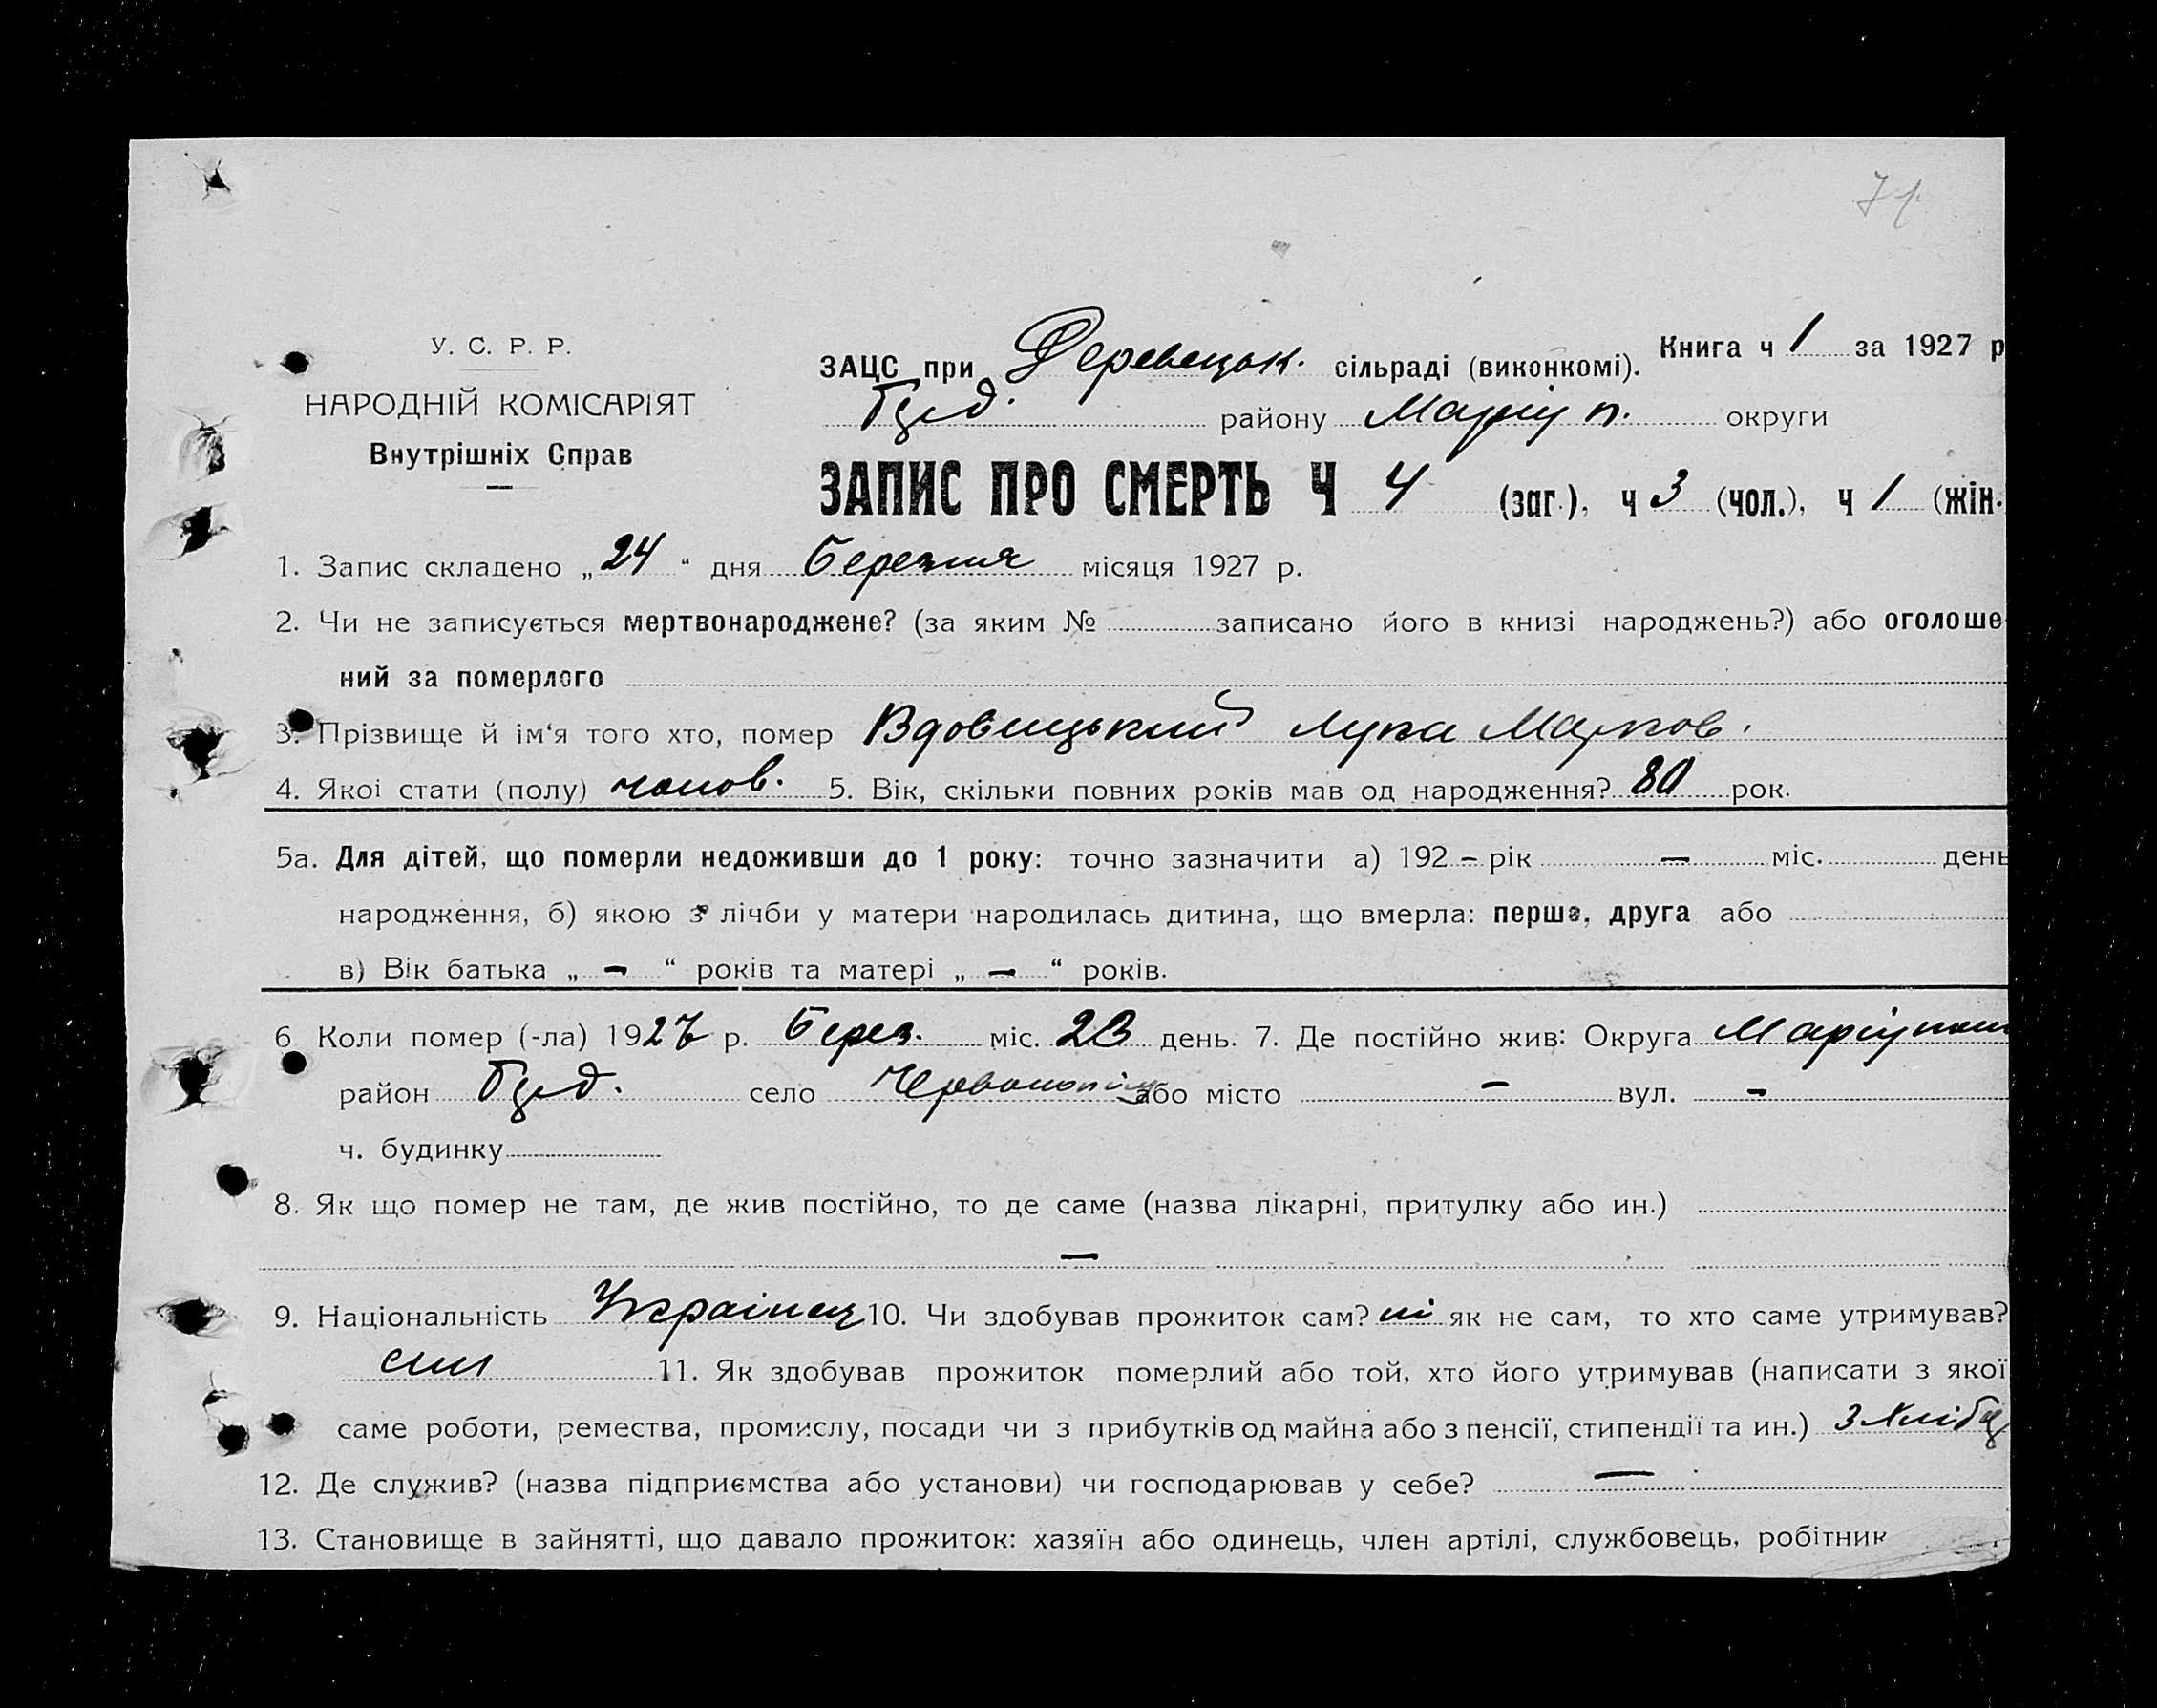 71
У. С. Р. Р.
НАРОДНІЙ КОМІСАРІЯТ
Внутрішніх Справ
ЗАЦС при Деревецьк. сільраді (виконкомі). Книга ч 1 за 1927 р
району Маріуп. округи
ЗАПИС ПРО СМЕРТЬ Ч 4 (заг.), ч 3 (чол.), ч 1 (жін.
1. Запис складено „24“ дня Березня місяця 1927 р.
2. Чи не записується мертвонароджене? (за яким № записано його в книзі народжень?) або оголоше-
ний за померлого
3. Прізвище й ім‘я того хто, помер Вдовицький Лука Марков.
4. Якоі стати (полу) чолов. 5. Вік, скільки повних років мав од народження? 80 рок.
5а. Для дітей, що померли недоживши до 1 року: точно зазначити а) 192 – рік — міс. день
народження, б) якою з лічби у матери народилась дитина, що вмерла: перша, друга або
в) Вік батька „ – “ років та матері „ – “ років.
6 Коли помер (-ла) 1927 р. Берез. міс. 23 день. 7. Де постійно жив: Округа Маріупол
район село або місто – вул. –
ч. будинку
8. Як що помер не там, де жив постійно, то де саме (назва лікарні, притулку або ин.)
—
9. Національність Українец 10. Чи здобував прожиток сам? ні як не сам, то хто саме утримував?
син 11. Як здобував прожиток померлий або той, хто його утримував (написати з якої
саме роботи, ремества, промислу, посади чи з прибутків од майна або з пенсії, стипендії та ин.) З хліб
12. Де служив? (назва підприємства або установи) чи господарював у себе? —
13. Становище в зайнятті, що давало прожиток: хазяїн або одинець, член артілі, службовець, робітник